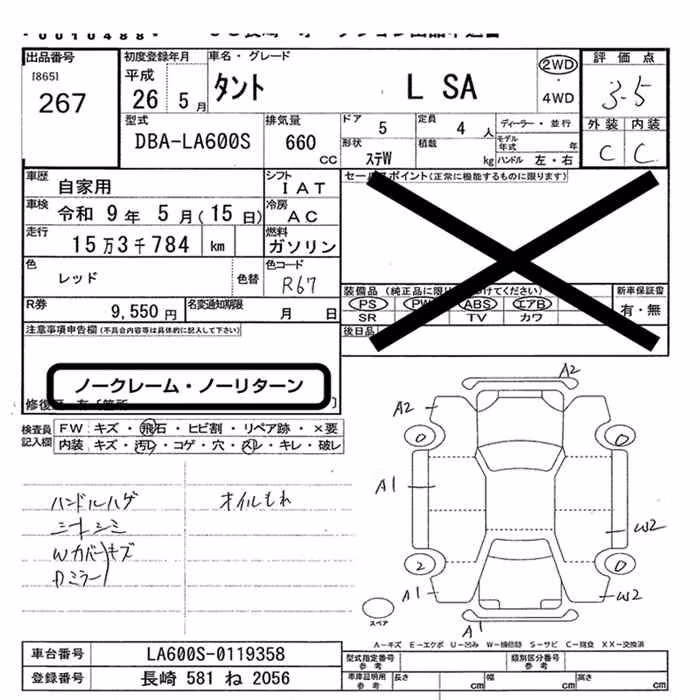 出品番号
[865]
267
初度登録年月
平成
26 5月
車名・グレード
タント L SA
2WD
・
4WD
評価点
3.5
外装 内装
C C
型式
DBA-LA600S
排気量
660
cc
ドア
5
定員
4 人
ディーラー・並行
モデル年式 年
形状
ステW
積載
kg
ハンドル 左・右
車歴
自家用
シフト
IAT
車検
令和 9年 5月(15日)
冷房
AC
走行
15万3千784 km
燃料
ガソリン
色
レッド
色替
色コード
R67
R券
9,550円
名変通知期限
月 日
セールスポイント(正常に機能するものに限ります)
装備品
PS PW ABS エアB
SR TV カワ
後日品
新車保証書
有・無
注意事項申告欄(不具合内容等は具体的に記入して下さい)
ノークレーム・ノーリターン
検査員記入欄
FW キズ・飛石・ヒビ割・リペア跡・×要
内装 キズ・汚レ・コゲ・穴・スレ・キレ・破レ
ハンドルハゲ
シートシミ
Wカバー キズ
Dミラー
オイルもれ
A2
A2
0
0
A1
W2
2
0
A1
W2
A1
スペア
A-キズ E-エクボ U-凹み W-補修跡 S-サビ C-腐食 XX-交換済
車台番号 LA600S-0119358
登録番号 長崎 581 ね 2056
型式指定番号
類別区分番号
車庫証明用参考
長さ cm
幅 cm
高さ cm